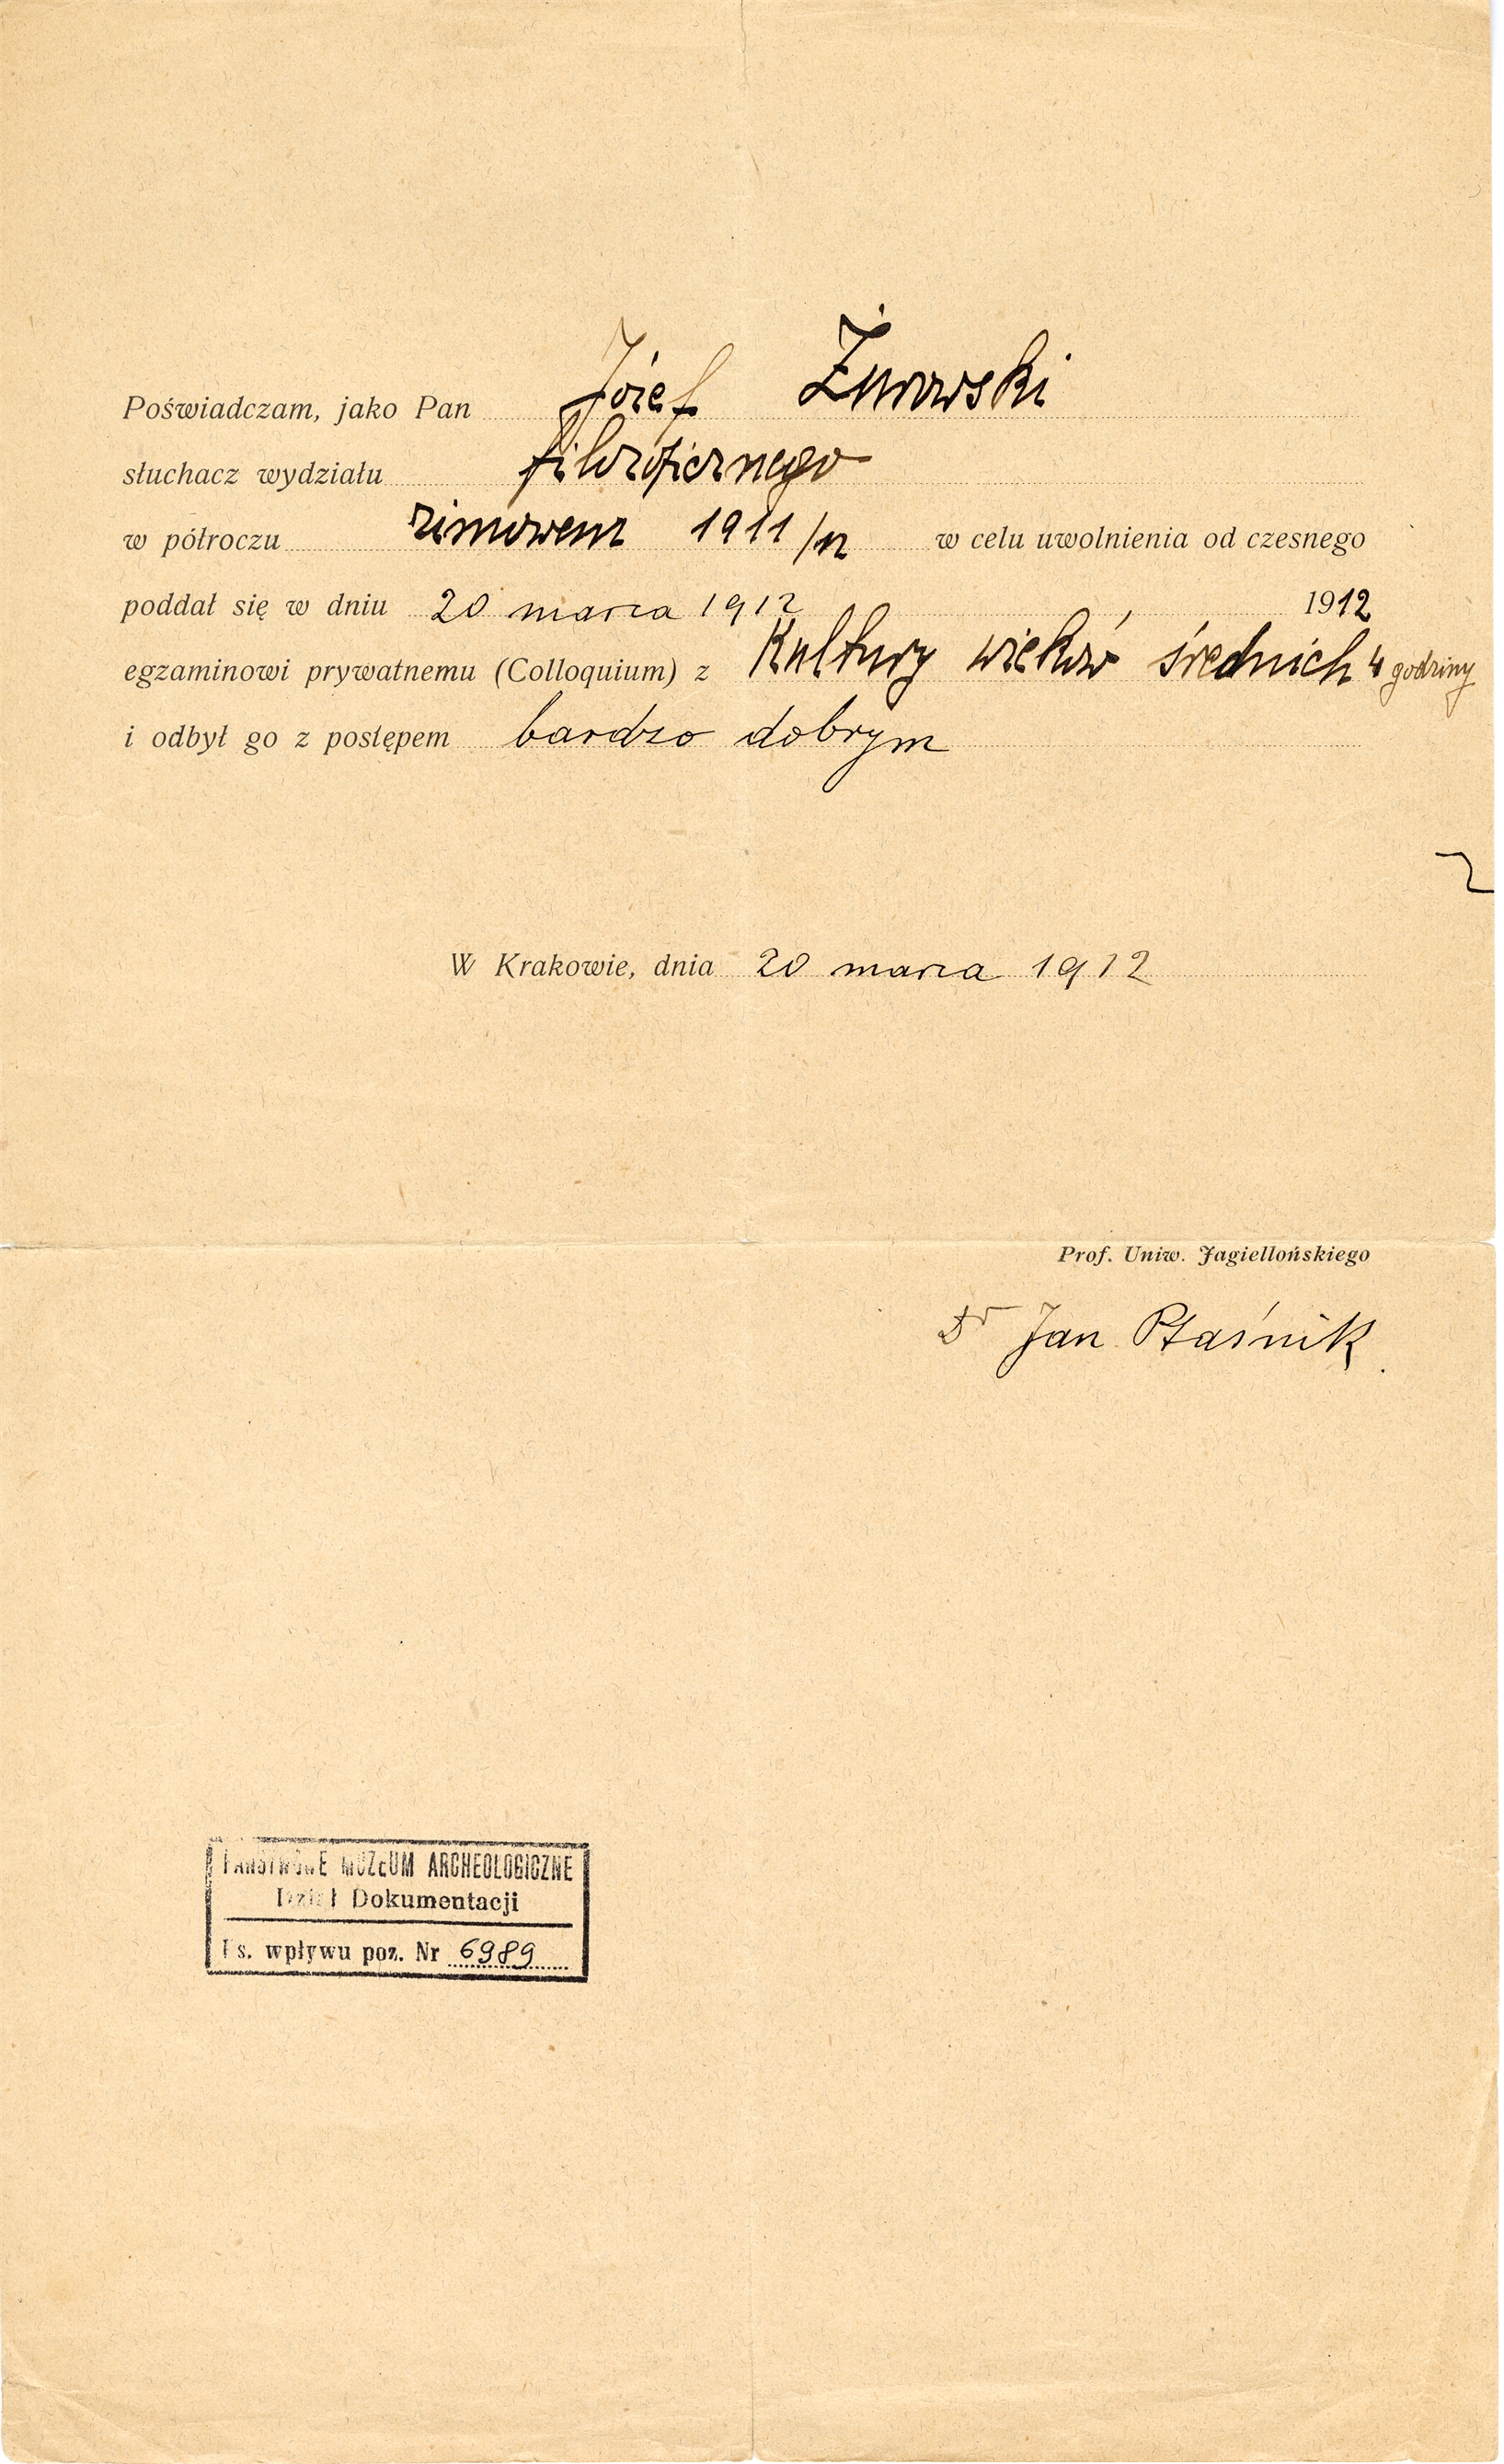 Poświadczam, jako Pan Józef Żurowski
słuchacz wydziału filozoficznego
w półroczu zimowem 1911/12 w celu uwolnienia od czesnego
poddał się w dniu 20 marca 1912 1912
egzaminowi prywatnemu (Colloquium) z Kultury wieków średnich 4 godziny
i odbył go z postępem bardzo dobrym
W Krakowie, dnia 20 marca 1912
Prof. Uniw. Jagiellońskiego
Dr Jan Ptaśnik
PAŃSTWOWE MUZEUM ARCHEOLOGICZNE
Dział Dokumentacji
Ks. wpływu poz. Nr 6989